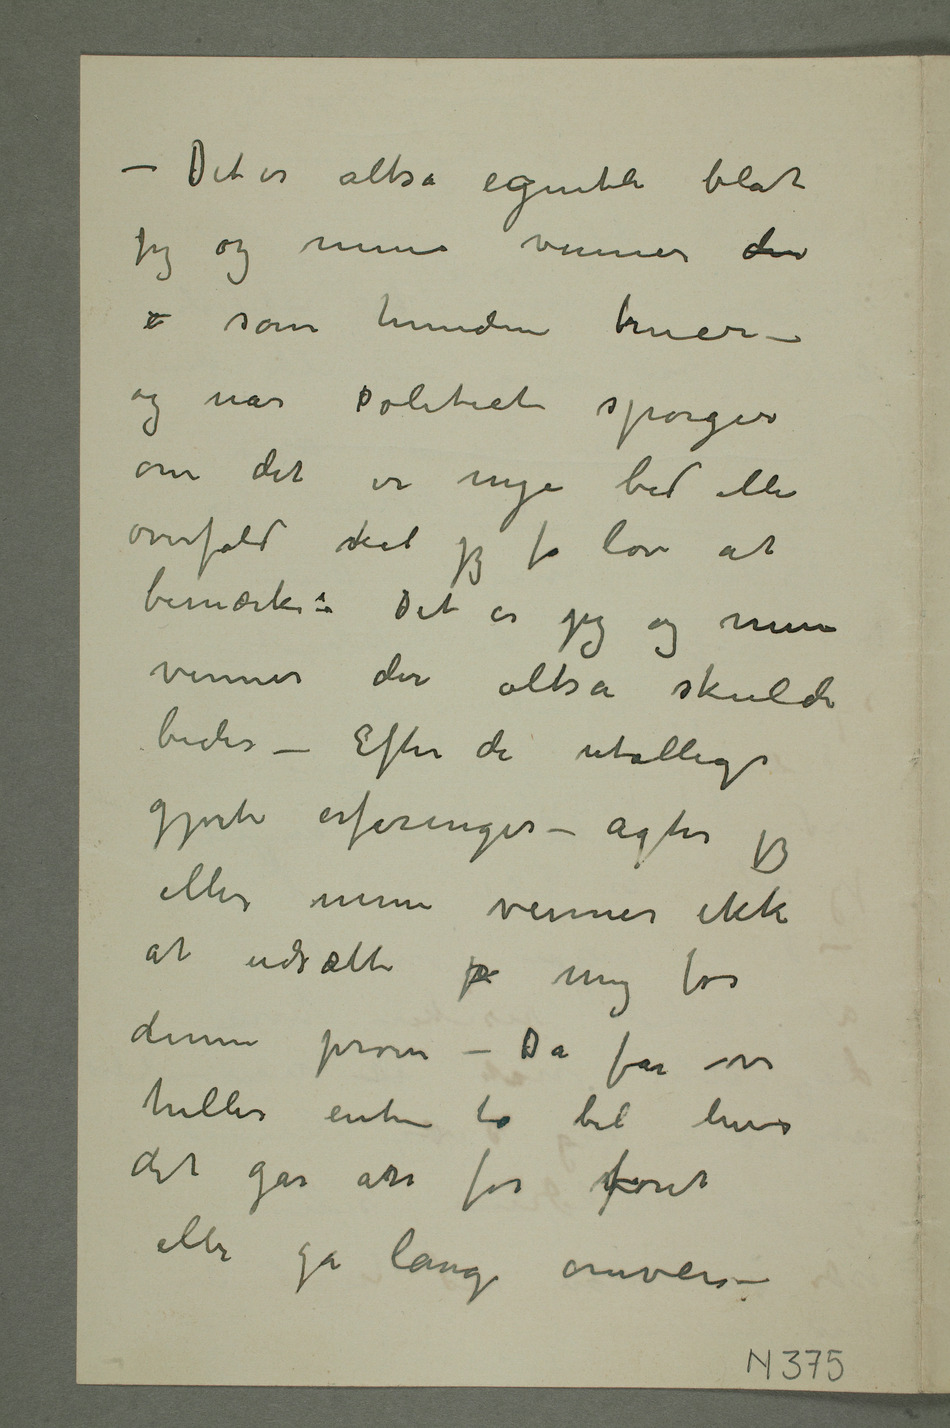 – Det er altså egentli blot
jeg og mine venner der
e som hunden truer –
og når politiet spørger
om det er mye bed eller
overfald skal jeg få lov at
bemærke: Det er jeg og mine
venner der altså skulde
bides – Efter de utallige
gjorte erfaringer – agter jeg
eller mine venner ikke
at udsætte p mig for
denne prøven – Da får vi
heller enten ta bil hvis
det går an for føret
eller gå lange omveie –
N 375